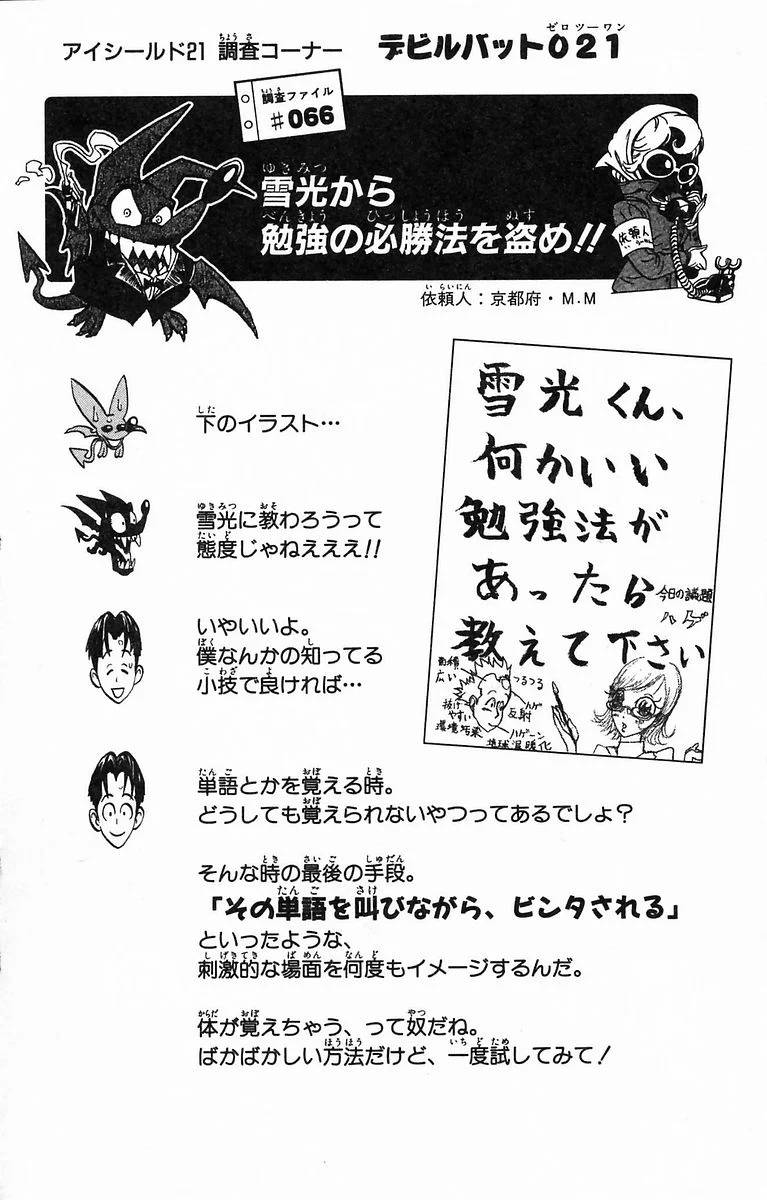 アイシールド21 調査コーナー デビルバット021
調査ファイル
#066
雪光から
勉強の必勝法を盗め!!
依頼人
依頼人：京都府・M.M
雪光くん、
何かいい
勉強法が
あったら
教えて下さい
今日の議題
ハゲ
面積
広い
つるつる
ハゲ
反射
抜け
やすい
環境汚染
ハゲーン
地球温暖化
下のイラスト…
雪光に教わろうって
態度じゃねえええ!!
いやいいよ。
僕なんかの知ってる
小技で良ければ…
単語とかを覚える時。
どうしても覚えられないやつってあるでしょ？
そんな時の最後の手段。
「その単語を叫びながら、ビンタされる」
といったような、
刺激的な場面を何度もイメージするんだ。
体が覚えちゃう、って奴だね。
ばかばかしい方法だけど、一度試してみて！